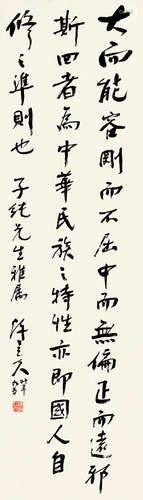 大而能容剛而不屈中而無偏正而遠邪
斯四者為中華民族之特性亦即國人自
修之準則也 子純先生雅屬 許世英